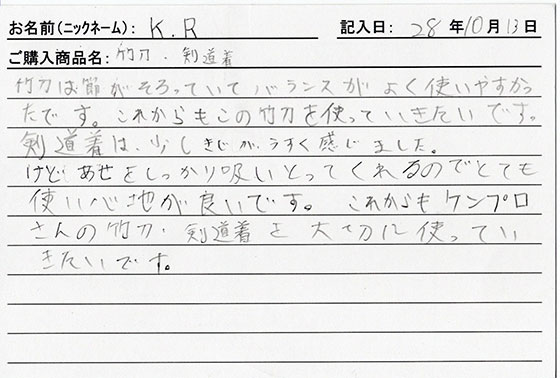 お名前(ニックネーム): K.R 記入日: 28 年 10 月 13 日
ご購入商品名: 竹刀・剣道着
竹刀は節がそろっていてバランスがよく使いやすかっ
たです。これからもこの竹刀を使っていきたいです。
剣道着は、少しきじが、うすく感じました。
けど あせをしっかり吸いとってくれるのでとても
使い心地が良いです。 これからもケンプロ
さんの竹刀・剣道着を大切に使ってい
きたいです。